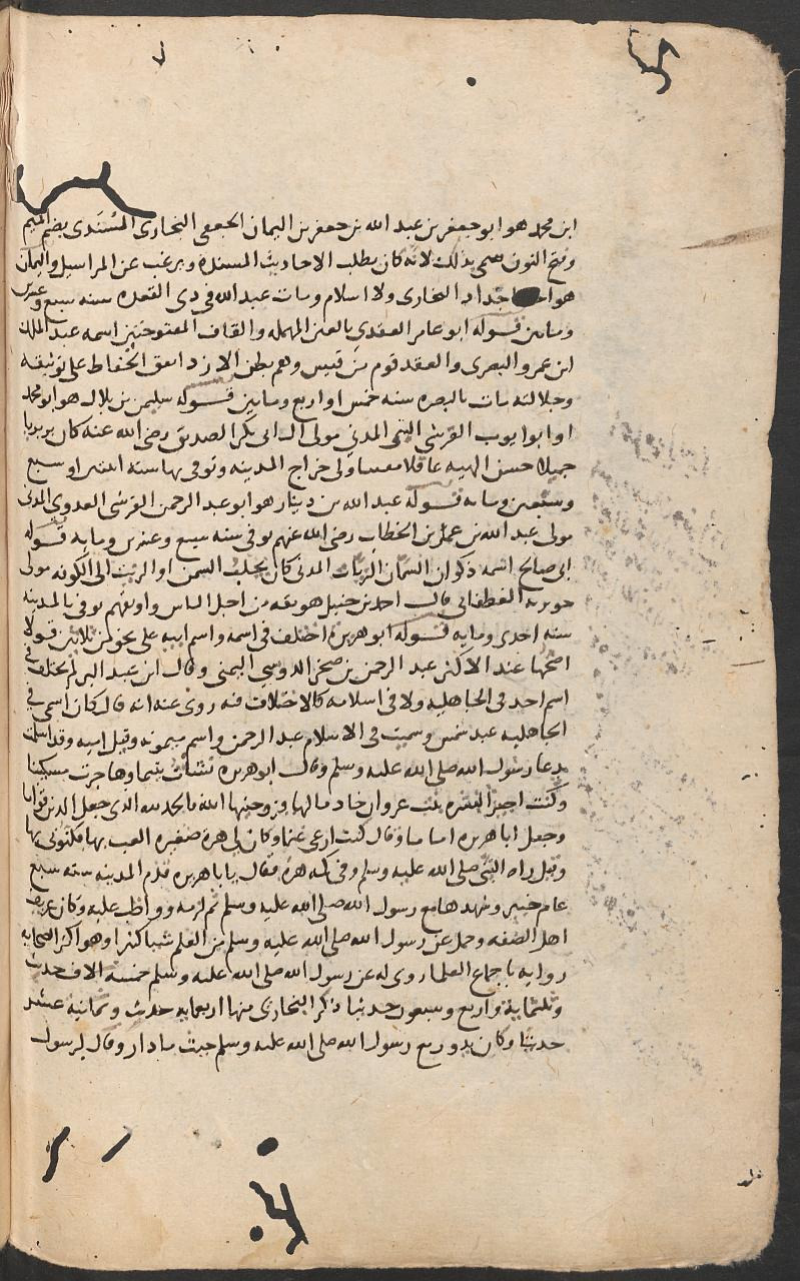 ابن محمد هو ابو جعفر بن عبد الله بن جعفر بن اليمان الجعفي البخارى المُسْنَدى بضم الميم
وفتح النون سمى بذلك لانه كان يطلب الاحاديث المسندة ويرغب عن المراسيل واليمان
هو اجداد البخارى ولا اسلام ومات عبد الله في ذى القعده سنه سبع وعشرين
ومايتين قوله ابو عامر العقدي بالعين المهمله والقاف المفتوحتين اسمه عبد الملك
ابن عمرو البصرى والعقد قوم من قيس وهم بطن الازد اتفق الحُفاظ على توثيقه
وجلالته مات بالبصره سنه خمس او اربع ومايتين قوله سليمن بن بلال هو ابو محمد
او ابو ايوب القرشي التيمى المدني مولى ال ابى بكر الصديق رضى الله عنه كان بربريا
جميلا حسن الهيه عاقلا مفتيا ولى خراج المدينه وتوفى بها سنه اثنتين او سبع
وسبعين ومايه قوله عبد الله بن دينار هو ابو عبد الرحمن القرشى العدوى المدنى
مولى عبد الله بن عمر بن الخطاب رضى الله عنهم توفى سنه سبع وعشرين ومايه قوله
ابى صالح اسمه ذكوان السمان الزيات المدنى كان يجلب السمن او الزيت الى الكوفه مولى
جويريه الغطفانى قال احمد بن حنبل هو ثقه من اجل الناس واوثقهم توفى بالمدينه
سنه احدى ومايه قوله ابو هريرة اختلف في اسمه واسم ابيه على نحو من ثلاثين قولا
اصحها عند الاكثر عبد الرحمن بن صخر الدوسي اليمنى وقال ابن عبد البر لم يختلف في
اسم احد في الجاهليه ولا في اسلامه كالاختلاف فيه روى عنه انه قال كان اسمى في
الجاهليه عبد شمس وسميت في الاسلام عبد الرحمن واسم ميمونه وقيل اميه وقد اسلمت
بدعا رسول الله صلى الله عليه وسلم وقال ابو هريره نشات يتيما وهاجرت مسكينا
وكنت اجيرا لبسره بنت غزوان خادما لها فزوجنيها الله فالحمد لله الذى جعل الدين قواما
وجعل ابا هريره اماما وقال كنت ارعى غنما وكان لى هرة صغيره العب بها فكنونى بها
وقيل راه النبى صلى الله عليه وسلم وفى كمه هرة فقال يا با هريره قدم المدينه سنه سبع
عام خيبر وشهدها مع رسول الله صلى الله عليه وسلم ثم لزمه وواظب عليه وكان عريف
اهل الصفه وحمل عن رسول الله صلى الله عليه وسلم من العلم شيا كثيرا وهو اكثر الصحابه
روايه باجماع العلما روى له عن رسول الله صلى الله عليه وسلم خمسة الاف حديث
وثلثماية واربع وسبعون حديثا ذكر البخارى منها اربعمايه حديث وثمانية عشر
حديثا وكان يدور مع رسول الله صلى الله عليه وسلم حيث ما دار وقال لرسول